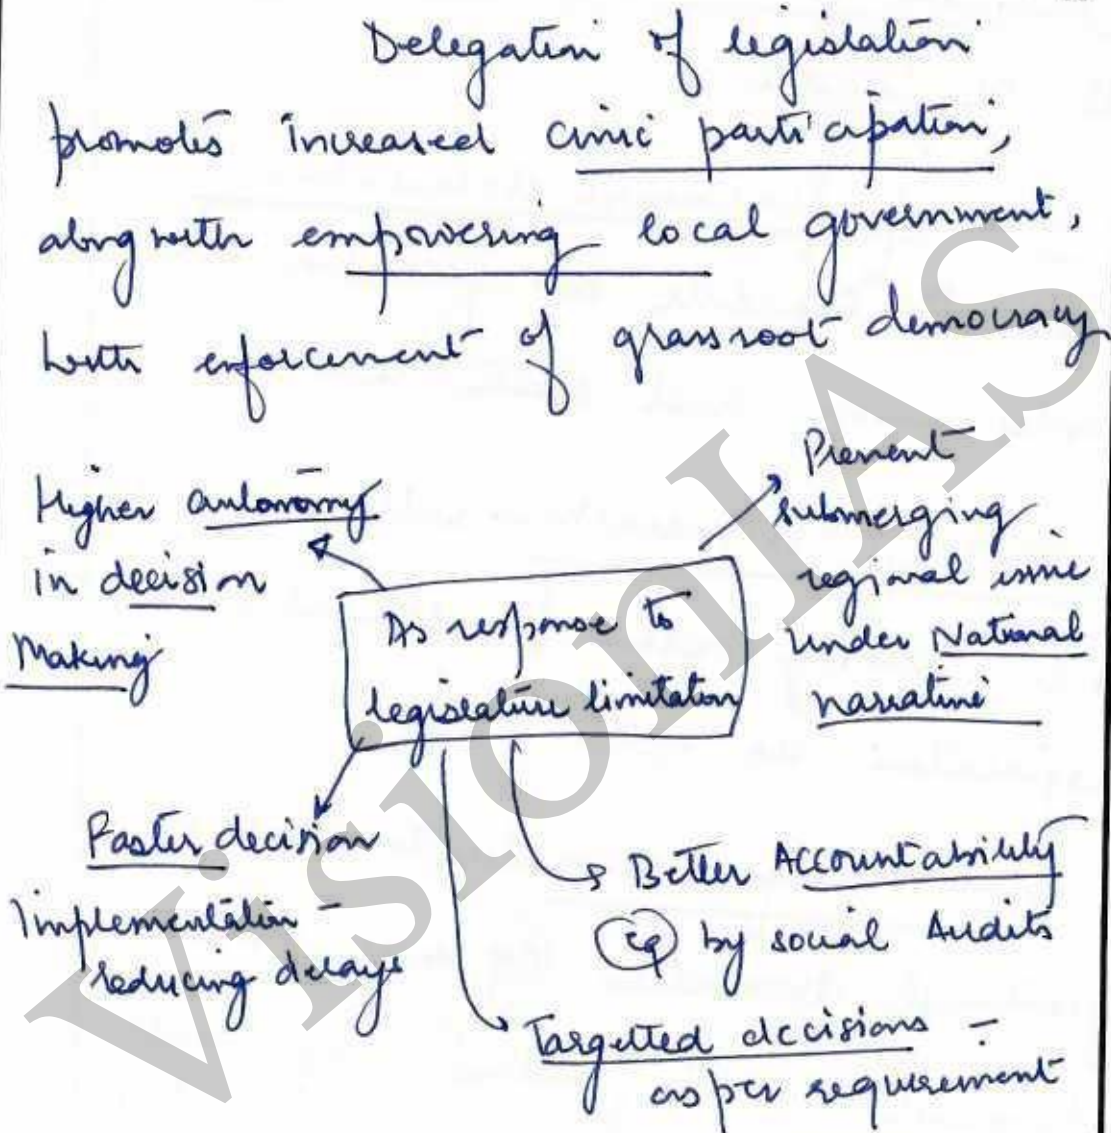 Delegation of legislation
promotes increased civic participation,
along with empowering local government,
with enforcement of grassroot democracy
Higher autonomy
in decision
Making
Prevent
submerging
regional issue
under National
narrative
As response to
legislature limitation
Faster decision
Implementation -
reducing delays
Better Accountability
eg by social Audits
Targetted decisions -
as per requirement
VisionIAS